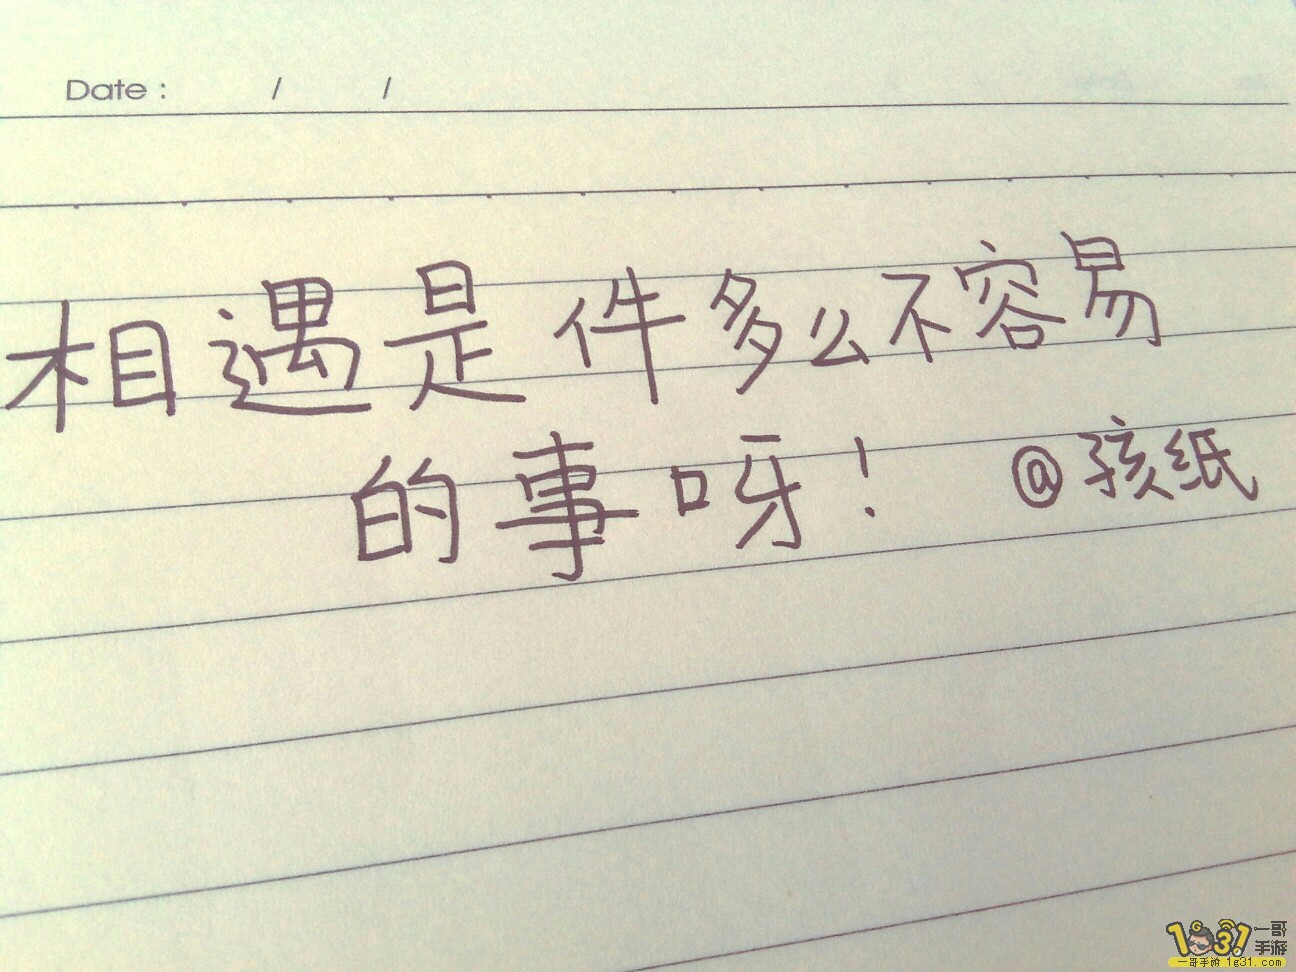 Date : / /
相遇是件多么不容易
的事呀! @孩纸
1931 一哥手游
一哥手游 1g31.com